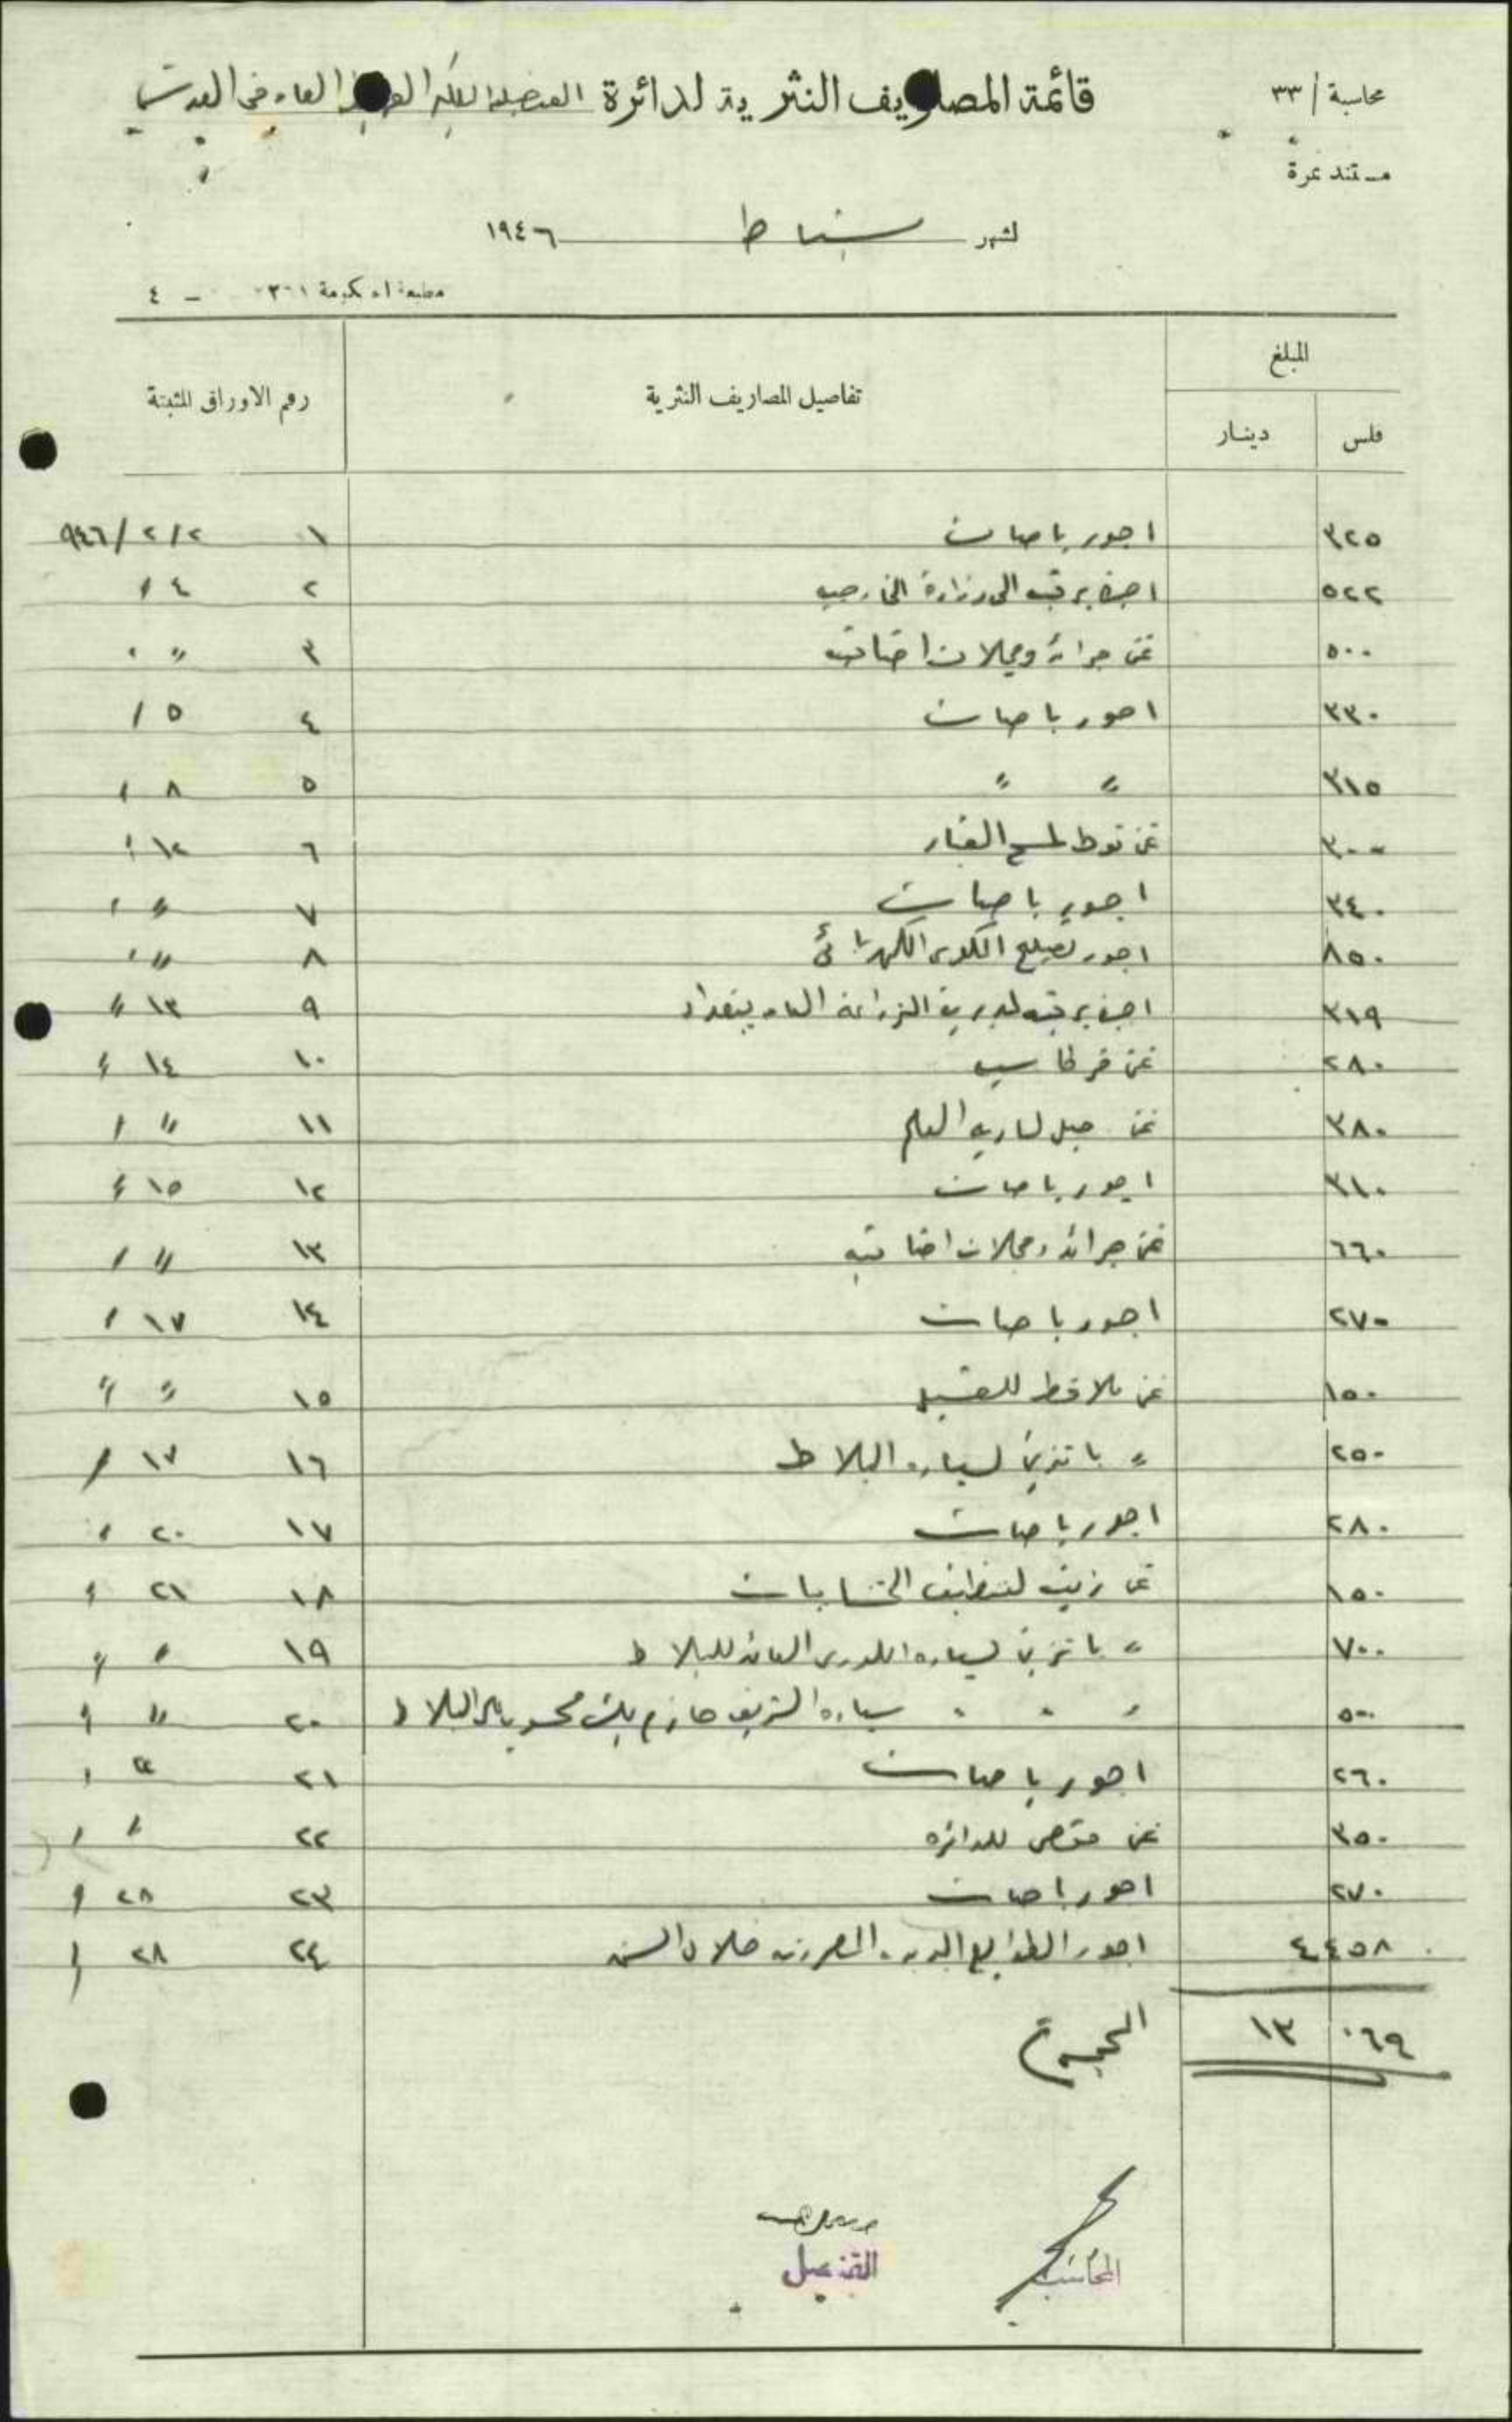 محاسبة / ٣٣
قائمة المصاريف النثرية لدائرة القنصلية الملكية العراقية العامة في القدس
مستند نمرة
لشهر شباط ١٩٤٦
مطبعة الحكومة
المبلغ
فلس دينار تفاصيل المصاريف النثرية رقم الاوراق المثبتة
٣٢٥ اجور باصات ١ ٢/٢/٩٤٦
٥٢٢ اجرة برقية الى وزارة الخارجية ٢ ٤ /
٥٠٠ ثمن جرائد ومجلات اضافية ٣ " "
٣٣٠ اجور باصات ٤ ٥ /
٣١٥ " " ٥ ٨ /
٣٠٠ ثمن فوط لمسح الغبار ٦ ١٢ /
٣٤٠ اجور باصات ٧ " /
٨٥٠ اجور تصليح الكوى الكهربائي ٨ " "
٣١٩ اجرة برقية لمديرية الزراعة العامة ببغداد ٩ ١٣ "
٢٨٠ ثمن قرطاسية ١٠ ١٤ /
٣٨٠ ثمن حبل لسارية العلم ١١ " /
٣١٠ اجور باصات ١٢ ١٥ /
٦٦٠ ثمن جرائد ومجلات اضافية ١٣ " /
٢٧٠ اجور باصات ١٤ ١٧ /
١٥٠ ثمن ملاقط للغسيل ١٥ " "
٢٥٠ " بانزين لسيارة البلاط ١٦ ١٧ /
٢٨٠ اجور باصات ١٧ ٢٠ /
١٥٠ ثمن زيت لتنظيف الخشابات ١٨ ٢١ /
٧٠٠ " بانزين لسيارة اللوري العائد للبلاط ١٩ " "
٥٠٠ " " " سيارة الشريف حازم بك البلاط ٢٠ " /
٢٦٠ اجور باصات ٢١ /
٣٥٠ ثمن مقص للدائرة ٢٢ / /
٢٧٠ اجور باصات ٢٣ ٢٨ /
٤٥٨ ٤ اجور الطوابع البريدية المصروفة خلال ٢٤ ٢٨ /
٠٦٩ ١٣ المجموع
المحاسب
القنصل